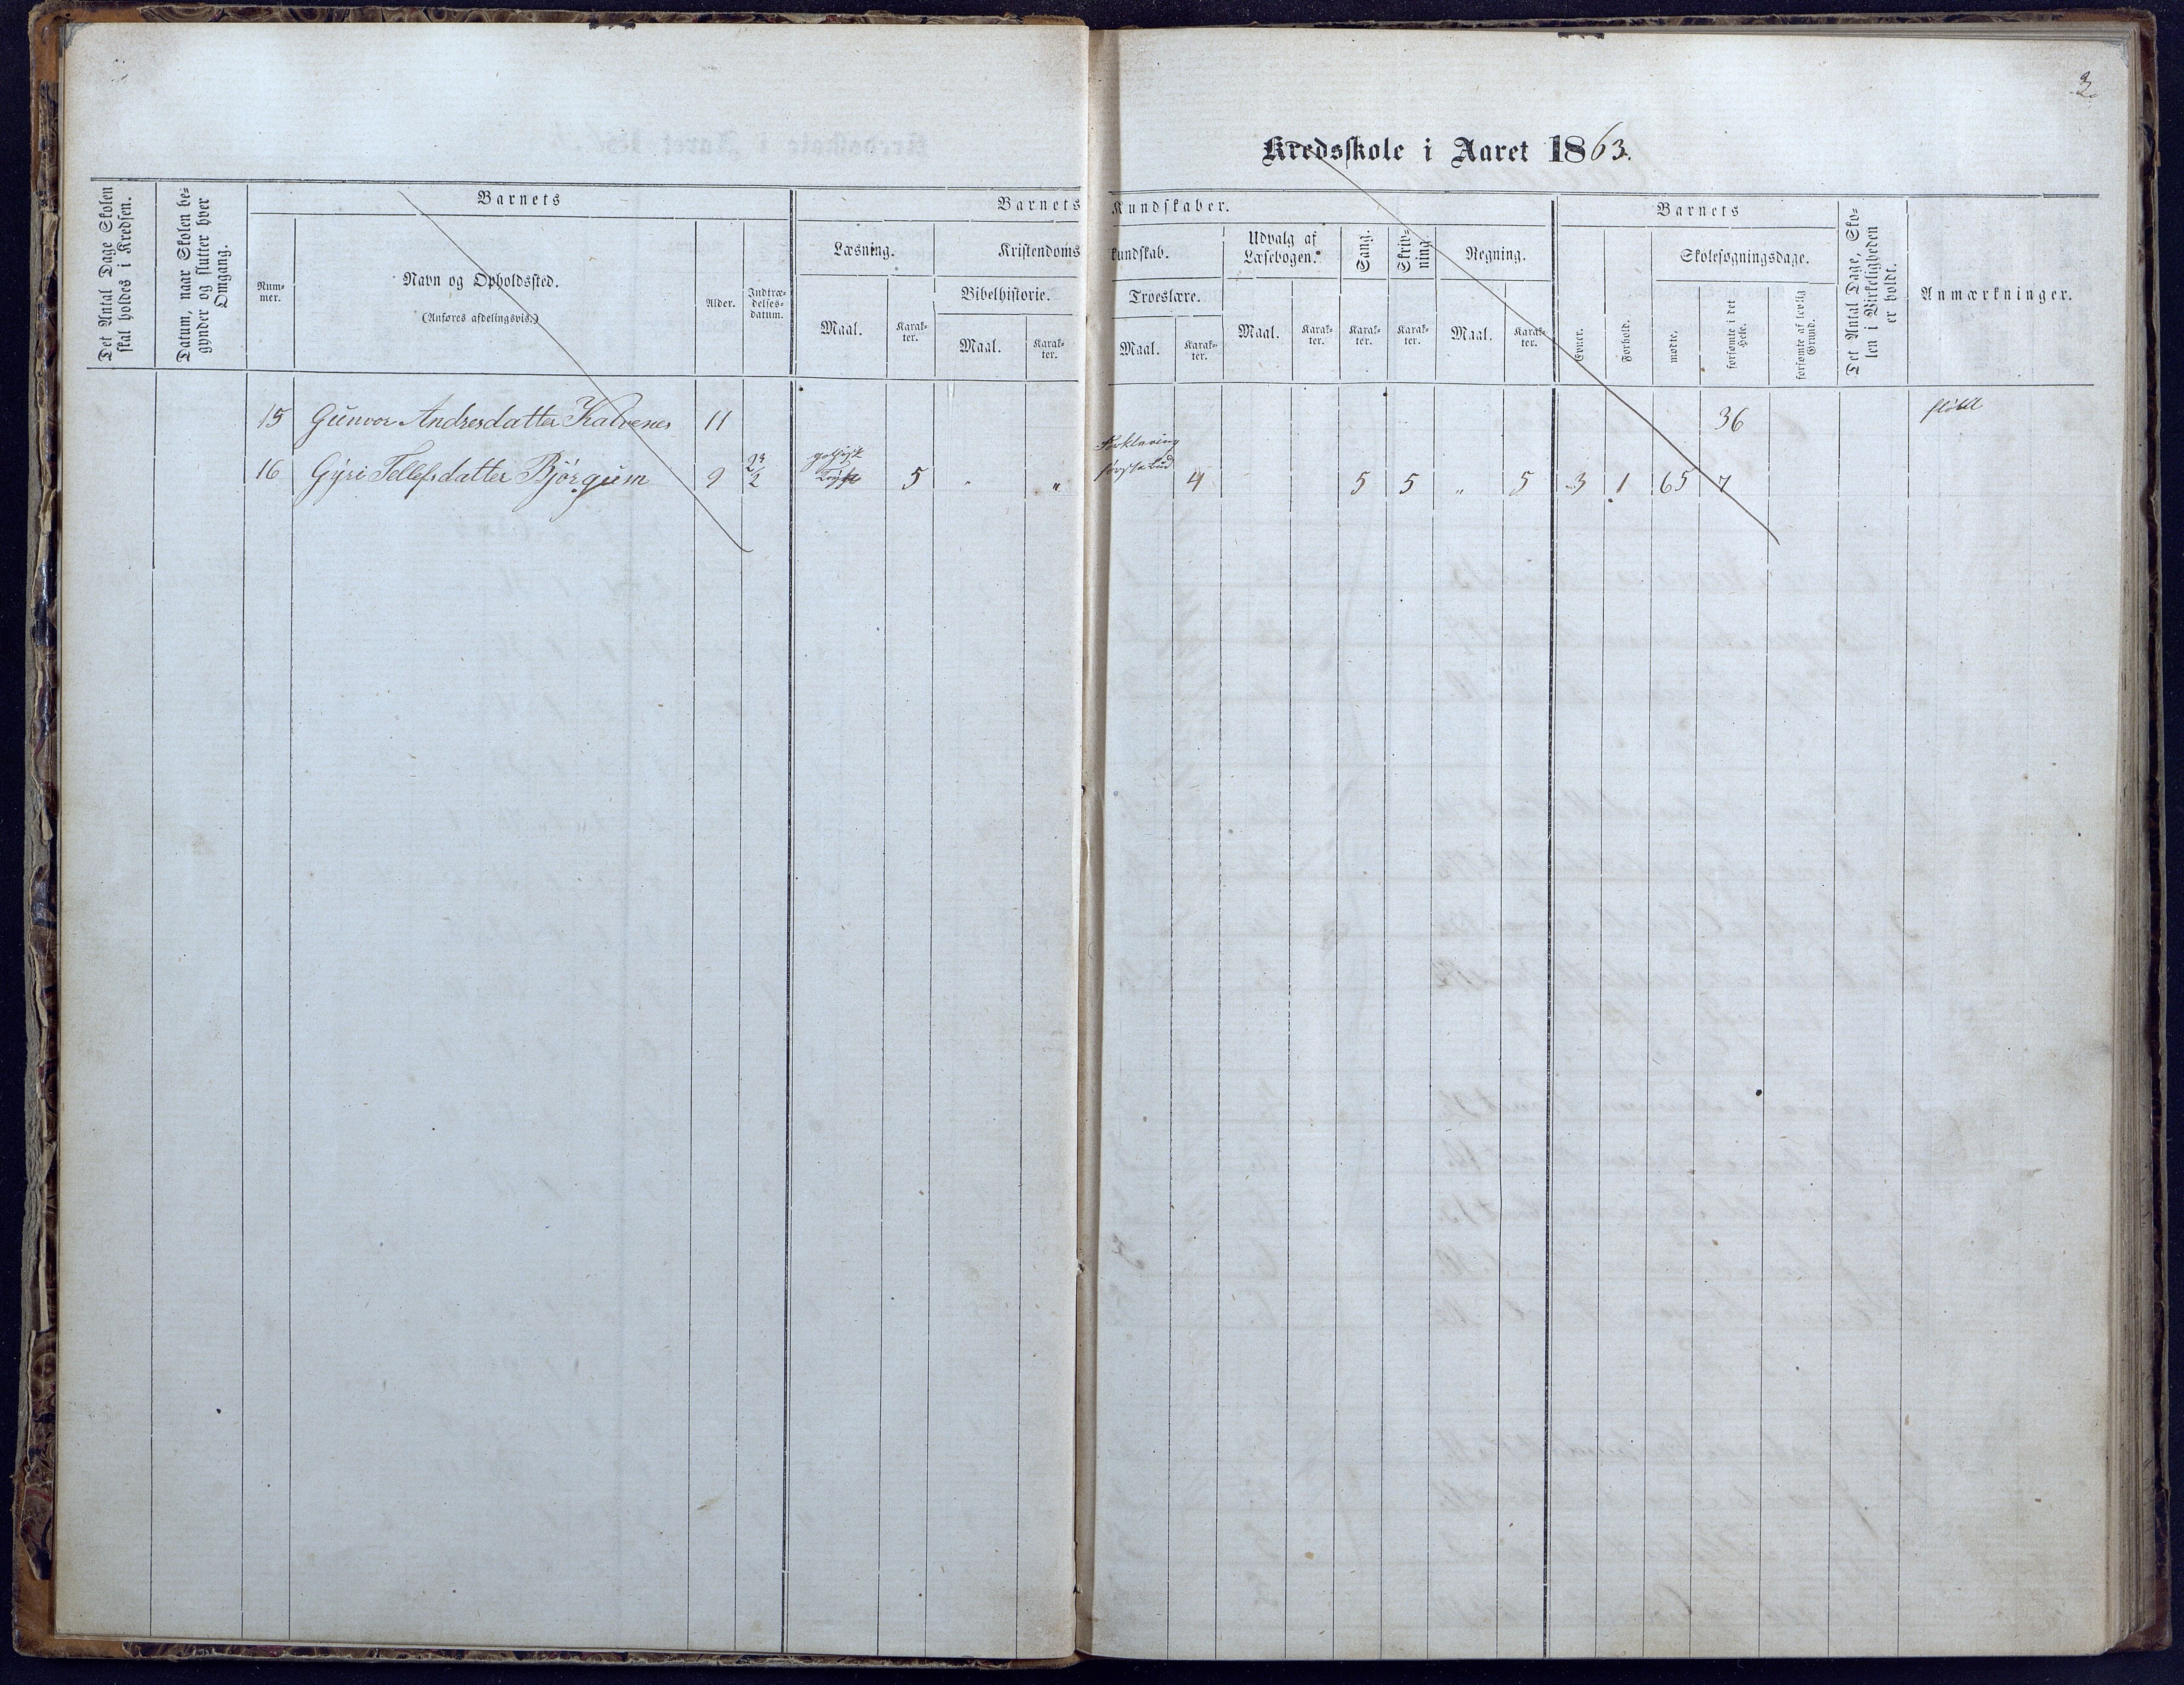 3
Kredsskole i Aaret 1863.
Det Antal Dage Skolen skal holdes i Kredsen.
Datum, naar Skolen begynder og slutter hver Omgang.
Barnets
Nummer.
Navn og Opholdssted.
(Anføres afdelingsvis.)
Alder.
Indtrædelsesdatum.
Barnets Kundskaber.
Læsning.
Maal.
Karakter.
Kristendomskundskab.
Bibelhistorie.
Maal.
Karakter.
Troeslære.
Maal.
Karakter.
Udvalg af Læsebogen.
Maal.
Karakter.
Sang.
Karakter.
Skrivning.
Karakter.
Regning.
Maal.
Karakter.
Barnets
Evner.
Forhold.
Skolesøgningsdage.
mødte.
forsømte i det Hele.
forsømte af lovlig Grund.
Det Antal Dage, Skolen i Virkeligheden er holdt.
Anmærkninger.
15 Gunvor Andresdatter Kalvenes 11 36
16 Gýri Tellefsdatter Bjørgum 9 23/2 5 " " Forklaring første Bud 4 5 5 " 5 3 1 65 7